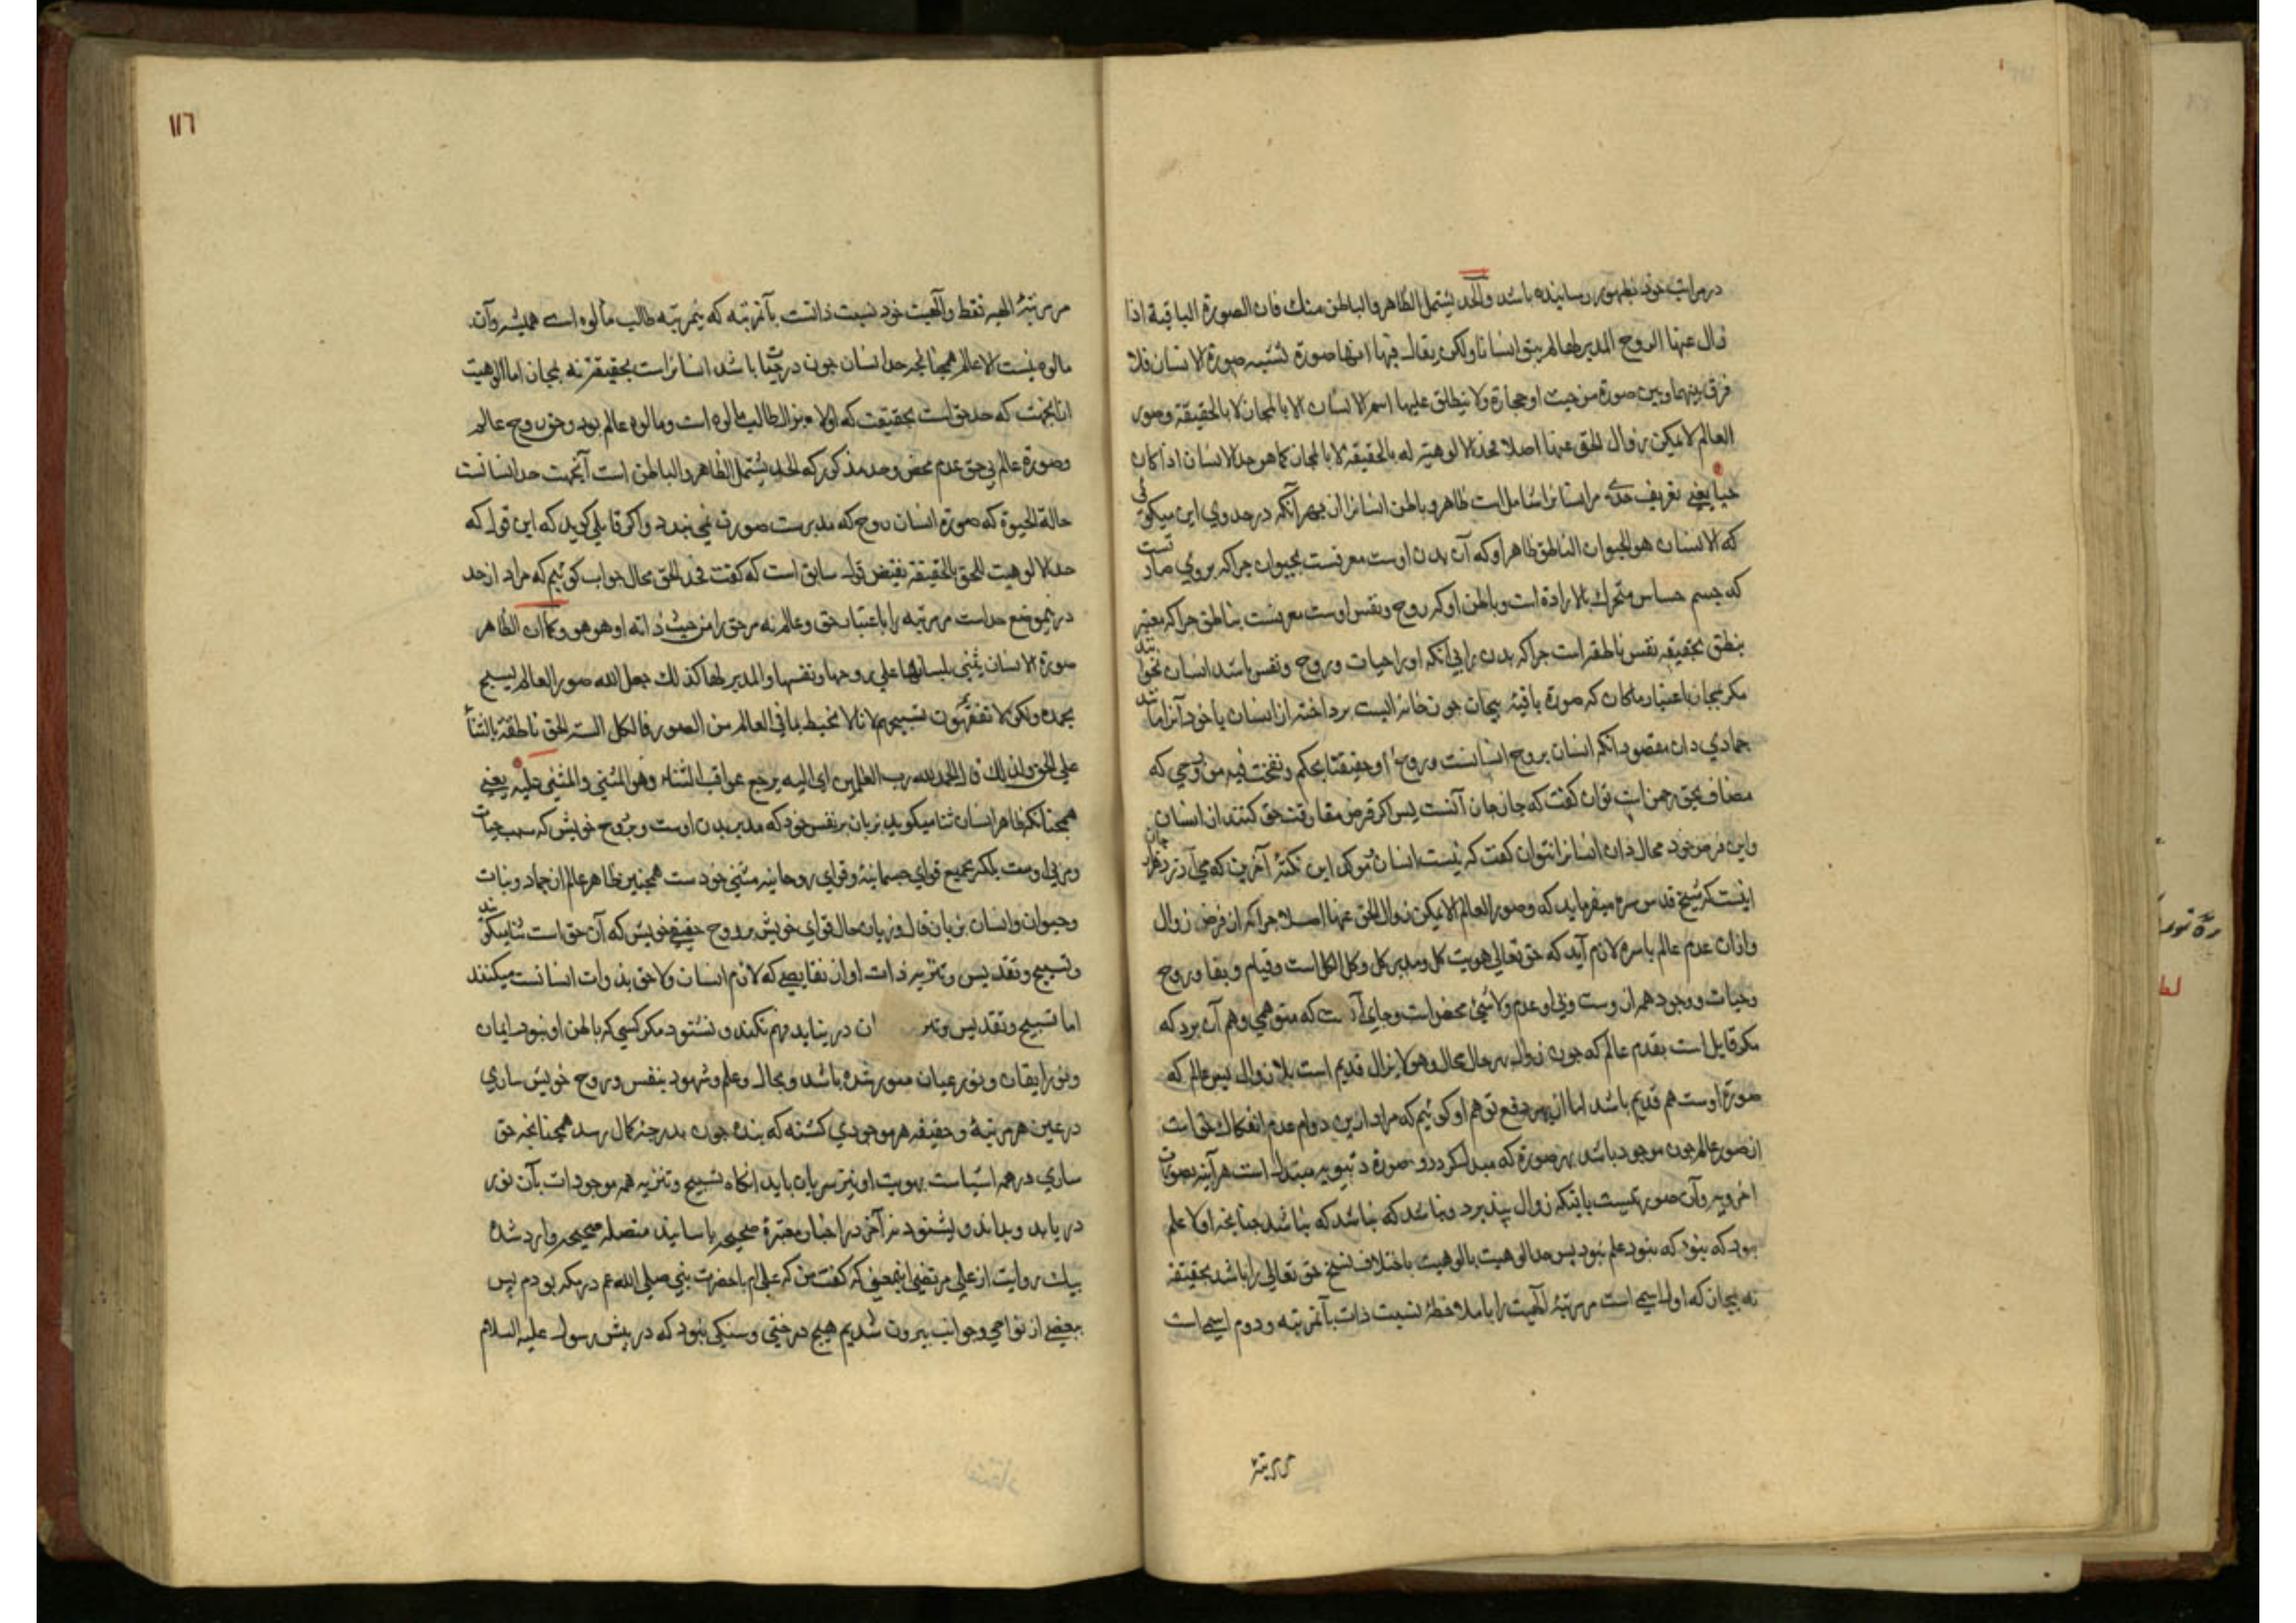 در مراتب خود بظهور رسانیده باشد والحد یشتمل الظاهر والباطن منك فان الصورة الباقية اذا
زال عنها الروح المدبر لها لم یبق انسانا ولكن یقال فیها انها صورة تشبه صورة الانسان فلا
فرق بینها وبین صورة من خشب او حجارة ولا ینطلق علیها اسم الانسان الا بالمجاز لا بالحقیقة وصور
العالم لا یمكن زوال الحق عنها اصلا فحد الالوهیة له بالحقیقة لا بالمجاز كما هو حد الانسان اذا كان
حیا یعنی تعریف حدی مر انسانرا شامل است ظاهر و باطن انسانرا از بهر آنکه در حد وی این میکوئی
که الانسان هو الحیوان الناطق ظاهر او که آن بدن اوست معرفست بحیوان جرا که بروی صادقست
که جسم حساس متحرك بالارادة است وباطن او که روح ونفس اوست معرفست بناطق جرا که معنی
بنطق بحقیقه نفس ناطقه است جرا که بدن را بی آنکه او را حیات و روح و نفس باشد انسان نخوانند
مکر بمجاز باعتبار ما کان که صورة باقیهٔ بیجان جون خانه ایست برداخته از انسان یا خود آنرا مانند
جمادی دان مقصود آنکه انسان بروح انسانست و روح او حقیقتا بحکم ونفخت فیه من روحی که
مضاف بحق رحمن است توان کفت که جان جان آنست پس اکر فرض مفارقت حق کنند از انسان
واین فرض خود محال دان انسانرا نتوان کفت که نیست انسان مؤکد این نکتهٔ آخرین که
اینست که شیخ قدس سره میفرماید که وصور العالم لا یمکن زوال الحق عنها اصلا جرا که از فرض زوال
وازان عدم عالم باسره لازم آید که حق تعالی هویت کل ومدبر کل وکل الکل است وقیام وبقا وروح
وحیات ووجود همه ازوست وبی او عدم ولا شیئ محض است وجای آنست که متوهمی وهم آن برد که
مکر قایل است بقدم عالم که جون زوال بهر حال محال وهو لا یزال قدیم است بلا زوال پس عالم که
صورة اوست هم قدیم باشد اما از بهر دفع توهم او کوئیم که مراد ازین دوام عدم انفکاك حق است
از صور عالم جون موجود باشد بهر صورة که مبدل کردد و صورة دنیویه مبتدل است هرآینه بصورت
اخرویه وآن صور نیست بآنکه زوال پذیرد ونباشد که نباشد که نباشد جنانجه اولا علم
بود که نبود که نبود علم نبود پس حد الوهیت بالوهیت باختلاف نسخ حق تعالی را باشد بحقیقة
نه بمجاز که اول اسمی است مر مرتبهٔ الهیت را با ملاحظهٔ نسبت ذات بآنمرتبه ودوم اسمی است
مر مرتبهٔ
١١٦
مر مرتبهٔ الهیه فقط والهیت خود نسبت ذاتست بآنمرتبه که بنمرتبه طالب مألوه است همیشه وآن
مالوه نیست الا عالم همجنانجه حد انسان جون در حیات باشد انسانراست بحقیقة نه بمجاز اما الوهیت
ازانجهت که حد حق است بحقیقت که او لا یزال طالب مالوه است ومالوه عالم بود وحق روح عالم
وصورة عالم بی حق عدم محض وحد مذکور که الحد یشتمل الظاهر والباطن است آنجهت حد انسانست
حالة الحیوة که صورة انسان روح که مدبرست صورت نمی بندد واکر قایلی کوید که این قول که
حد الالوهیت للحق بالحقیقة نقیض قول سابق است که کفت فحد الحق محال جواب کوئیم که مراد از حد
درینموضع حد است مر مرتبه را باعتبار حق وعالم نه مر حق را من حیث ذاته او هو هو وكما ان الظاهر
صورة الانسان یثنی بلسانها علی روحها ونفسها والمدبر لها کذلك جعل الله صور العالم یسبح
بحمده ولکن لا تفقهون تسبیحهم لانا لا نحیط بما فی العالم من الصور فالکل السنة الحق ناطقة بالثناء
علی الحق ولذلك قال الحمد لله رب العالمین ای الیه یرجع عواقب الثناء وهو المثنی والمثنی علیه یعنی
همجنانکه ظاهر انسان ثنا میکوید بزبان بر نفس خود که مدبر بدن اوست وبروح خویش که سبب حیات
ومربی اوست بلکه بجمیع قوای جسمانیه وقوای روحانیه مثنی خودست همجنین ظاهر عالم از جماد ونبات
وحیوان وانسان بزبان قال وزبان حال قوای خویش بر روح حقیقی خویش که آن حق است ثنا میکویند
وتسبیح وتقدیس وتنزیه ذات او از نقایصی که لازم انسان ولاحق بذوات انسانست میکنند
اما تسبیح وتقدیس وتنز ان درنیابد فهم نکند ونشنود مکر کسی که باطن او بنور ایمان
ونور ایقان ونور عیان منور شده باشد وبحال وعلم وشهود بنفس وروح خویش ساری
در عین هر مرتبهٔ وحقیقه هر موجودی کشته که بنده جون بدرجهٔ کمال رسد همجنانجه حق
ساری در همه اشیاست بهویت او نیز سریان یابد انکاه تسبیح وتنزیه همه موجودات بآن نور
دریابد وبداند وبشنود نه آخر در اخبار معتبرهٔ صحیحه باسانید متصله صحیحه وارد شده
بیك روایت از علی مرتضی اینمعنی که کفت من که علی ام با حضرت نبی صلی الله عم در مکه بودم پس
ببعضی از نواحی وجوانب بیرون شدیم هیج درختی وسنکی نبود که در پیش رسول علیه السلام